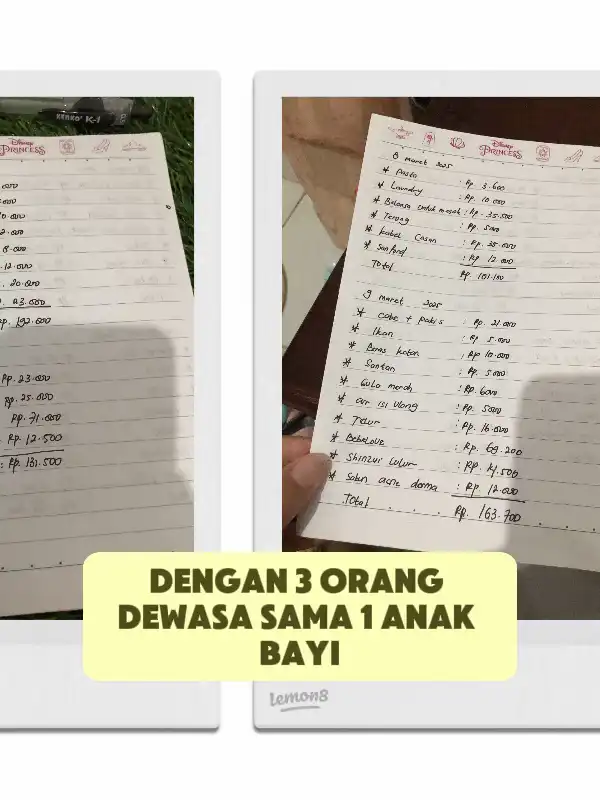 KENKO K-1
Disney
PRINCESS
.000
.000
0.000
2.000
8.000
.12.000
. 20.000
. 43.000
Rp. 192.000
Rp. 23.000
Rp. 25.000
Rp. 71.000
Rp. 12.500
: Rp. 131.500
Disney
PRINCESS
8 maret 2025
* Pasta : Rp 3.600
* Laundry : Rp. 10.000
* Belanja untuk masak : Rp. 35.500
* Terong : Rp. 5.000
* Kabel Casan : Rp. 35.000
* Sanford : Rp 12.000
Total Rp. 101.100
9 maret 2025
* Cabe + Pakis : Rp. 21.000
* Ikan : Rp 5.000
* Beras ketan : Rp 10.000
* Santan : Rp. 5.000
* Gula merah : Rp. 6000
* air isi ulang : Rp. 5000
* Telur : Rp. 16.000
* Bebelove : Rp. 69.200
* Shinzui lulur : Rp. 14.500
* Sabun acne derma : Rp. 12.000
Total Rp. 163.700
DENGAN 3 ORANG
DEWASA SAMA 1 ANAK
BAYI
lemon8